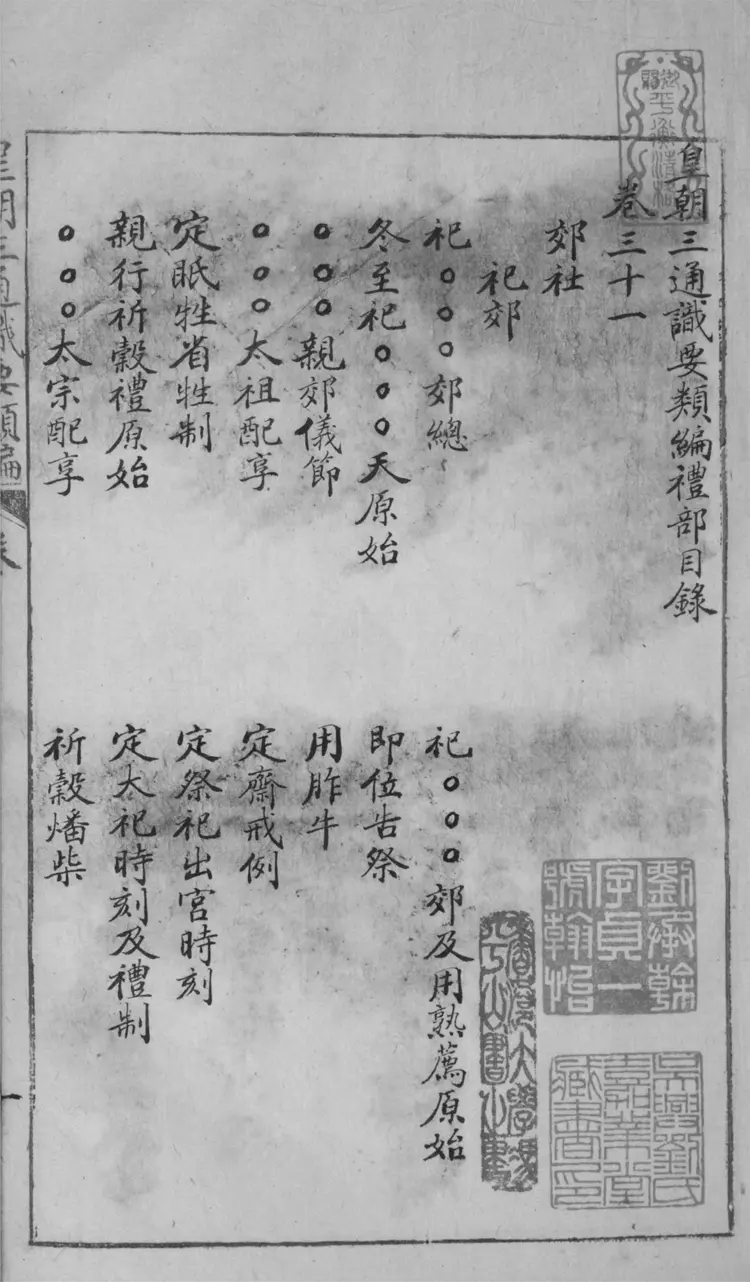 皇朝三通識要類編禮部目錄
卷三十一
郊社
祀郊
祀○○○郊總
祀○○○郊及用熟薦原始
冬至祀○○○天原始
即位告祭
○○○親郊儀節
用胙牛
○○○太祖配享
定齋戒例
定眂牲省牲制
定祭祀出宮時刻
親行祈穀禮原始
定大祀時刻及禮制
○○○太宗配享
祈穀燔柴
皇朝三通識要類編
卷
一
劉承幹
字貞一
號翰怡
吳興劉氏
嘉業堂
藏書印